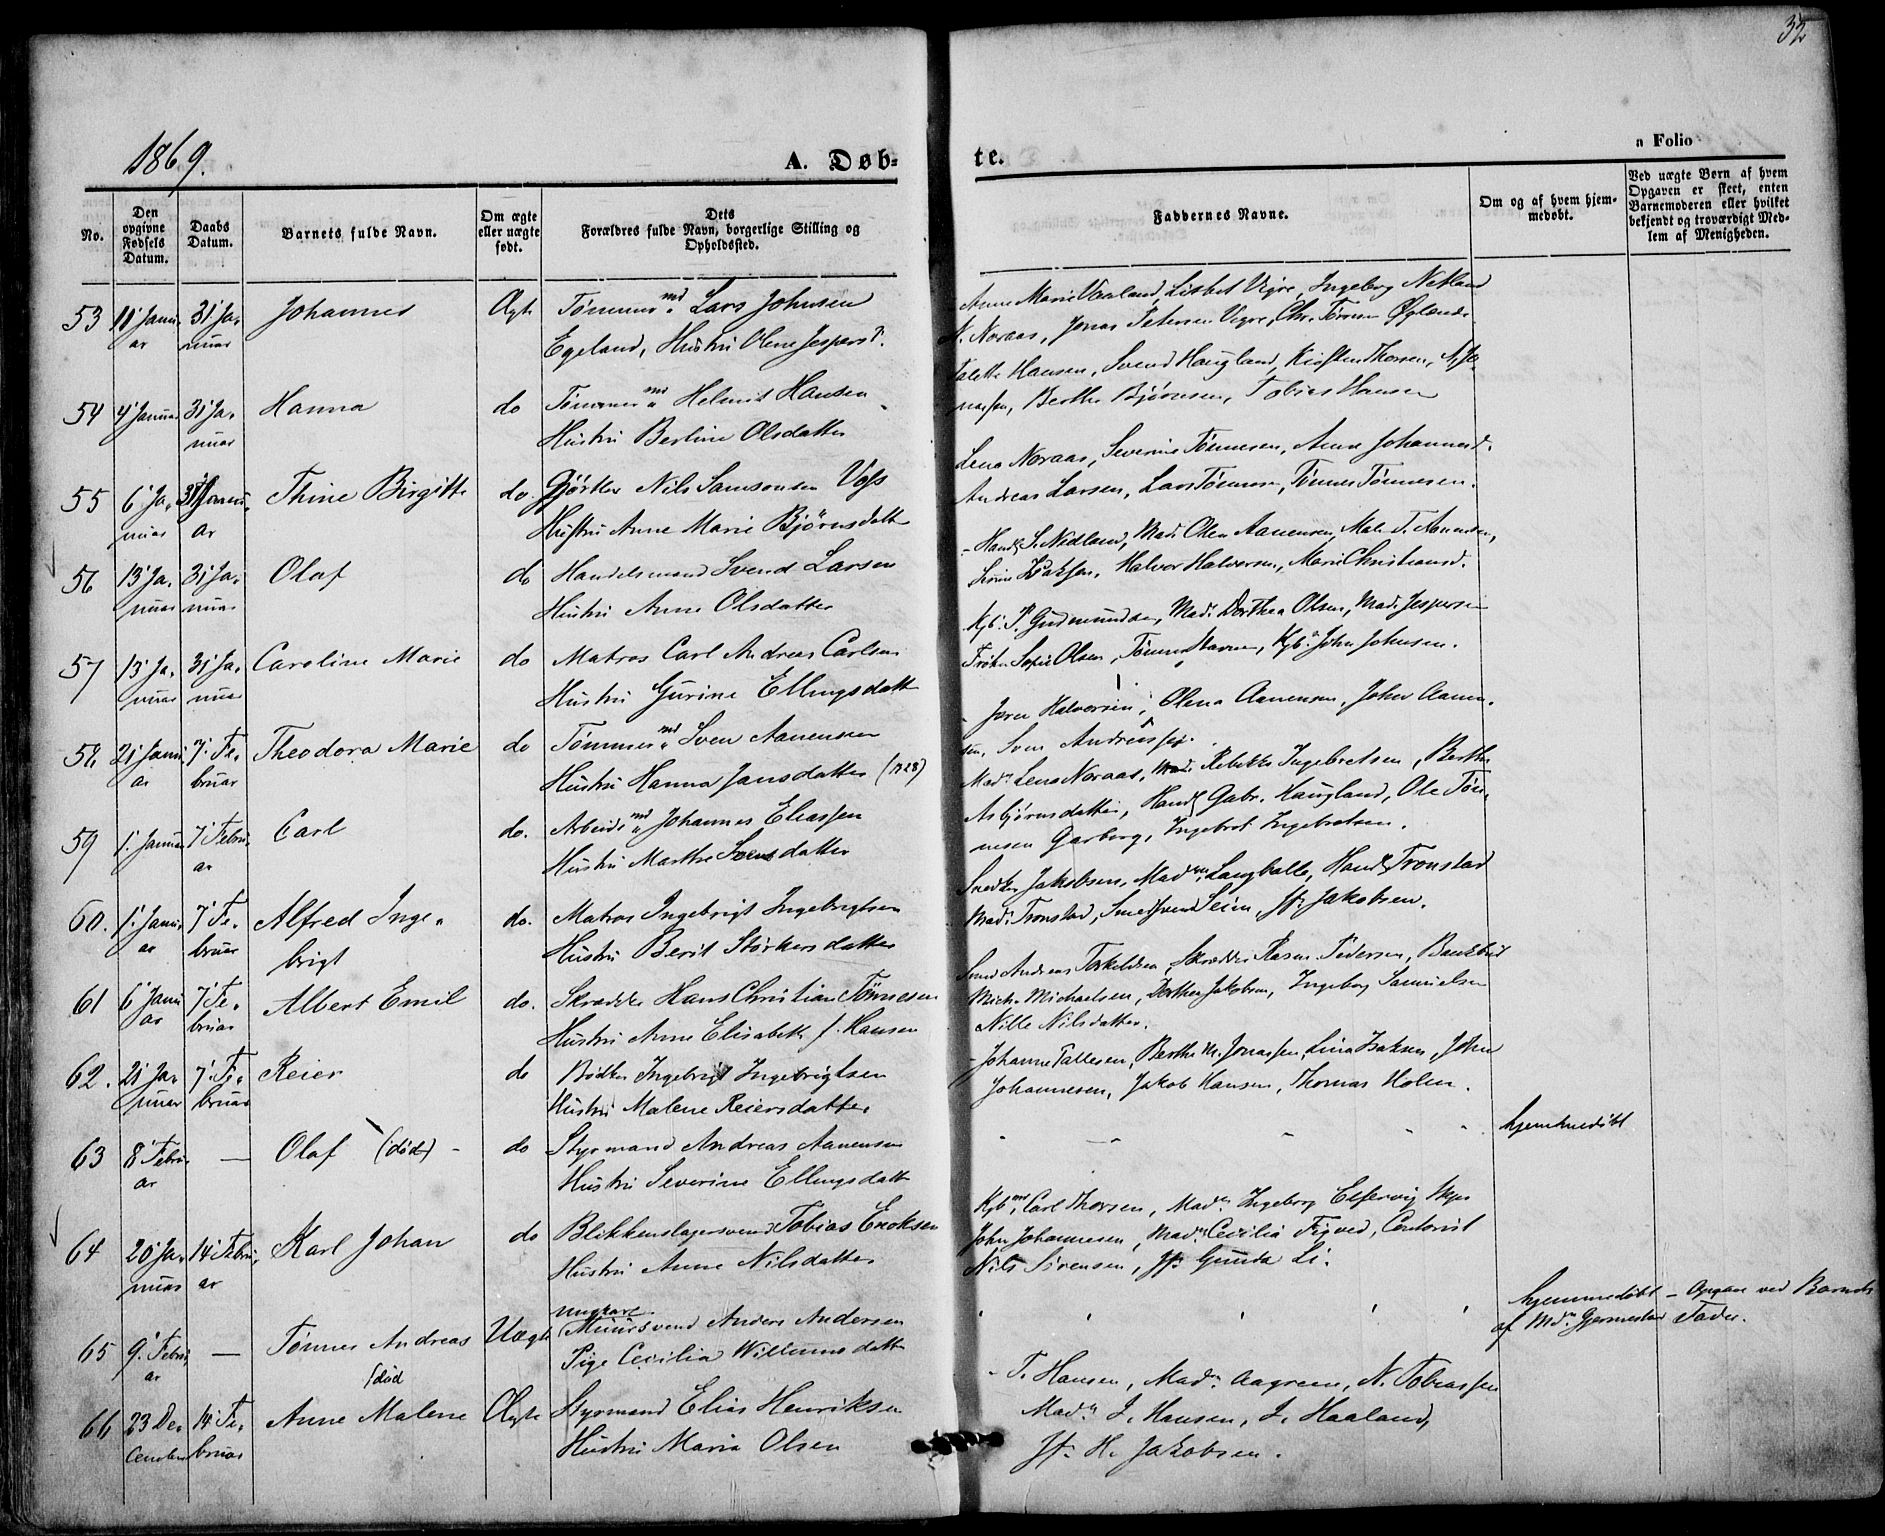 32
1869.
A. Døb-
te.
n Folio
No.
Den opgivne Fødsels Datum.
Daabs Datum.
Barnets fulde Navn.
Om ægte eller uægte født.
Dets Forældres fulde Navn, borgerlige Stilling og Opholdssted.
Faddernes Navne.
Om og af hvem hjemmedøbt.
Ved uægte Børn af hvem Opgaven er skeet, enten Barnemoderen eller hvilket bekjendt og troværdigt Medlem af Menigheden.
53 31 Ja- Johannes Ægte Tømmermd. Lars Johnsen
nuar Egeland, Hustru Olene Jespersd.
Anne Marie Varland, Lisbet Vigre, Ingeborg Netland
N. Noraas, Jonas Petersen Vigre, Chr. Tønnesen
54 4 Januar 31 Ja- Hanna do Tømmermd. Helmik Hansen
nuar Hustru Berline Olsdatter
Hansen, Svend Haugland, Kirsten Thorsen,
Berthe Bjørnsen, Tobias Hansen
55 6 Ja- 31 Janu- Thine Birgitte do. Gjørtler Nils Samsonsen Voss
nuar ar Hustru Anne Marie Bjørnsdatt
Lena Noraas, Severine Tønnesen, Anne Johannesd.
Andreas Larsen, Lars Tønnesen, Tønnes Tønnesen.
56 13 Ja- 31 Ja- Olaf do Handelsmand Svend Larsen
nuar nuar Hustru Anne Olsdatter
S. Nedland, Mad. Olea Aanensen, Male T. Aanensen,
Isaksen, Halvor Halvorsen, Marie Christiansd.
57 13 Ja- 31 Ja- Caroline Marie do Matros Carl Andreas Carlsen
nuar nuar Hustru Gurine Ellingsdatt
Gudmundsen, Mad. Dorthea Olsen, Mad. Jespersen
Frøken Sofie Olsen, Tønnes Stavnem, John Johnsen.
58 21 Janu- 7. Fe- Theodora Marie do Tømmermd. Sven Aanensen
ar bruar Hustru Hanna Jansdatter (1728)
Halvorsen, Olena Aanensen, John Aanen-
sen, Sven
59 1. Januar 7 Febru- Carl do. Arbeidsmd. Johannes Eliassen
ar Hustru Marthe Svensdatter
Mad. Lena Noraas, Mad. Rebekka Ingebretsen, Berthe
Asbjørnsdatter, Gabr. Haugland, Ole Tøn-
nesen Garborg, Ingebret Ingebretsen.
60. 1. Janu- 7 Fe- Alfred Inge- do. Matros Ingebrigt Ingebrigtsen
ar bruar brigt Hustru Berit Størkersdatter
Snedker Jakobsen, Madm. Langballe, Tronstad
Mad. Tronstad, Smedsvend Seim, Jfr. Jakobsen.
61 6 Janu 7 Fe- Albert Emil do. Skrædder Hans Christian Tønnesen
ar bruar Hustru Anne Elisabeth f. Hansen
Andreas Torkeldsen, Skrædder Rasm. Pedersen,
Mich. Michaelsen, Dorthea Jakobsen, Ingeborg Samuelsen
Nille Nilsdatter.
62. 21 Ja- 7. Fe- Reier do Bødker Ingebrigt Ingebrigtsen
nuar bruar Hustru Malene Reiersdatter
Johanne Tallesen, Berthe M. Jonassen, Lina Isaksen, John
Johannesen, Jakob Hansen, Thomas Holm.
63 8 Febru- — Olaf (død) - do Styrmand Andreas Aanensen
ar Hustru Severine Ellingsdatt
hjemmedøbt
64 20 Ja- 14 Febru- Karl Johan do Blikkenslagersvend Tobias Enoksen
nuar ar Hustru Anne Nilsdatter
Carl Thorsen, Madm. Ingeborg
John Johannesen, Madm. Cecilia Tigved, Contorist
Nils Sørensen, Jfr. Gunda Li.
65 9. Febru — Tønnes Andreas Uægte Ungkarl
ar (død Muursvend Anders Andersen
Pige Cecilia Willumsdatt
hjemmedøbt - Opgave ved Barnets
af Md. Gjermestad Fader.
66 23 De- 14 Fe- Anne Malene Ægte Styrmand Elias Henriksen
cember bruar Hustru Maria Olsen
T. Hansen, Madm. Aagreen, N. Tobiassen
Madm. J. Hansen, J. Haaland,
Jfr. H. Jakobsen.